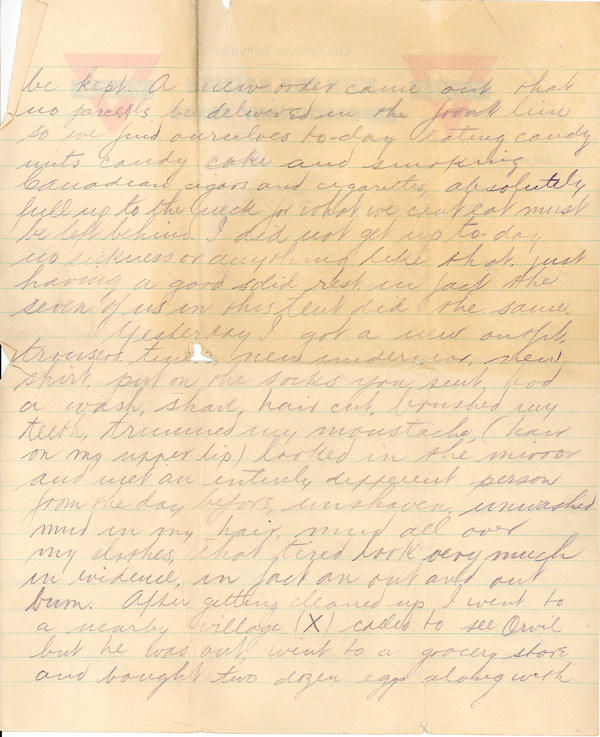 On Active Service
be kept. A new order came out that
no parcels be delivered in the front line
so we find ourselves to-day eating candy
nuts candy cake and smoking
Canadian cigars and cigarettes, absolutely
full up to the neck for what we cant eat must
be left behind. I did not get up to-day
no sickness or anything like that. just
having a good solid rest in fact the
seven of us in this tent did the same.
Yesterday I got a new outfit,
trousers, new underwear, new
shirt. put on the socks you sent, had
a wash, shave, hair cut, brushed my
teeth, trimmed my moustache, (hair
on my upper lip) looked in the mirror
and met an entirely different person
from the day before, unshaven, unwashed
mud in my hair, mud all over
my clothes, that tired look very much
in evidence, in fact an out and out
bum. After getting cleaned up, I went to
a nearby village (X) called to see Orvil
but he was out, went to a grocery store
and bought two dozen eggs along with